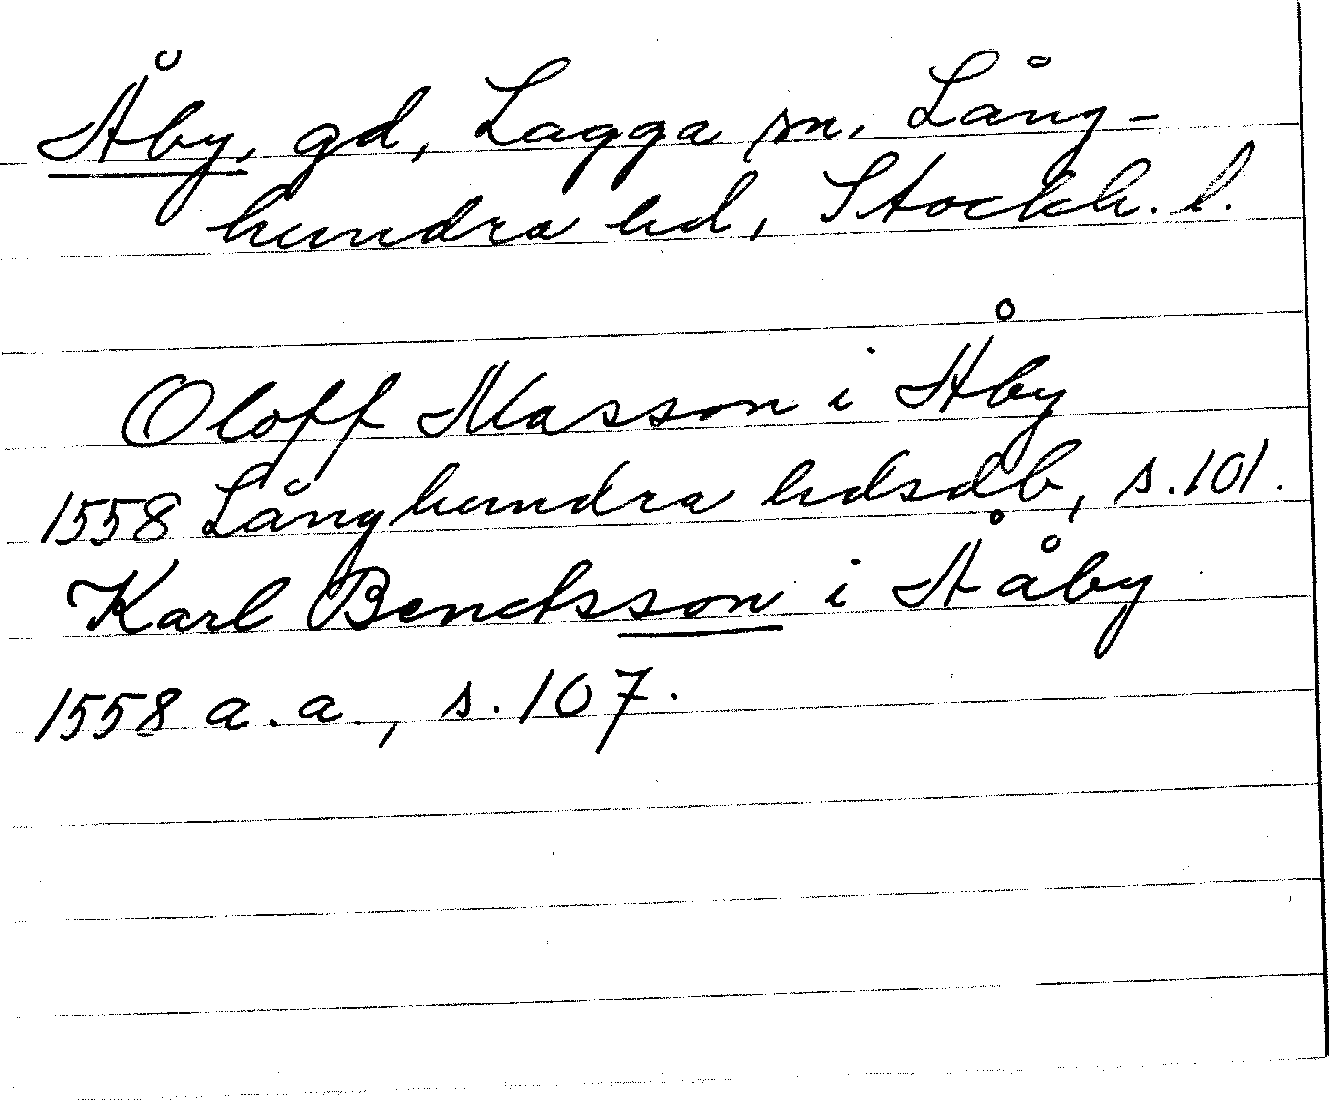 Åby, gd, Lagga sn, Lång-
hundra hd, Stockh. l.
Oloff Masson i Åby
1558 Långhundra hdsdb, s. 101.
Karl Bendsson i Ååby
1558 a.a, s. 107.